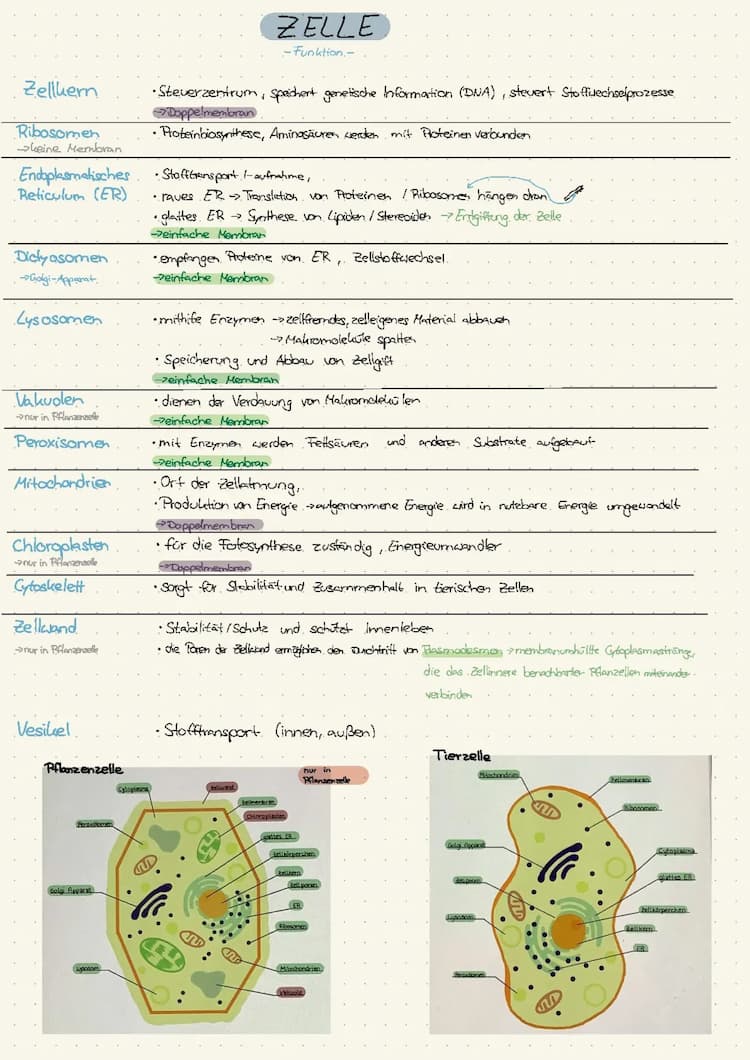 ZELLE
- Funktion -
Zellkern
• Steuerzentrum, speichert genetische Information (DNA), steuert Stoffwechselprozesse
→ Doppelmembran
Ribosomen
→ keine Membran
• Proteinbiosynthese, Aminosäuren werden mit Proteinen verbunden
Endoplasmatisches
Reticulum (ER)
• Stofftransport / -aufnahme,
• raues ER → Translation von Proteinen / Ribosomen hängen dran
• glattes ER → Synthese von Lipiden / Stereoiden → Entgiftung der Zelle
→ einfache Membran
Dictyosomen
→ Golgi-Apparat
• empfangen Proteine von ER, Zellstoffwechsel
→ einfache Membran
Lysosomen
• mithife Enzymen → zellfremdes, zelleigenes Material abbauen
→ Makromoleküle spalten
• Speicherung und Abbau von Zellgift
→ einfache Membran
Vakuolen
→ nur in Pflanzenzelle
• dienen der Verdauung von Makromolekülen
→ einfache Membran
Peroxisomen
• mit Enzymen werden Fettsäuren und anderen Substrate aufgebaut
→ einfache Membran
Mitochondrien
• Ort der Zellatmung,
• Produktion von Energie → aufgenommene Energie wird in nutzbare Energie umgewandelt
→ Doppelmembran
Chloroplasten
→ nur in Pflanzenzelle
• für die Fotosynthese zuständig, Energieumwandler
→ Doppelmembran
Cytoskelett
• sorgt für Stabilität und Zusammenhalt in tierischen Zellen
Zellwand
→ nur in Pflanzenzelle
• Stabilität / Schutz und schützt Innenleben
• die Poren der Zellwand ermöglichen den Durchtritt von Plasmodesmen → membranumhüllte Cytoplasmastränge,
die das Zellinnere benachbarter Pflanzellen miteinander
verbinden
Vesikel
• Stofftransport (innen, außen)
Pflanzenzelle
nur in
Pflanzenzelle
Cytoplasma
Zellwand
Zellmembran
Chloroplasten
Peroxisomen
glattes ER
Zellkörperchen
Zellkern
Golgi Apparat
Zellporen
ER
Ribosomen
Lysosom
Mitochondrien
Vakuole
Tierzelle
Mitochondrien
Zellmembran
Ribosomen
Golgi Apparat
Cytoplasma
glattes ER
Zellporen
Zellkörperchen
Lysosom
Zellkern
ER
Peroxisomen